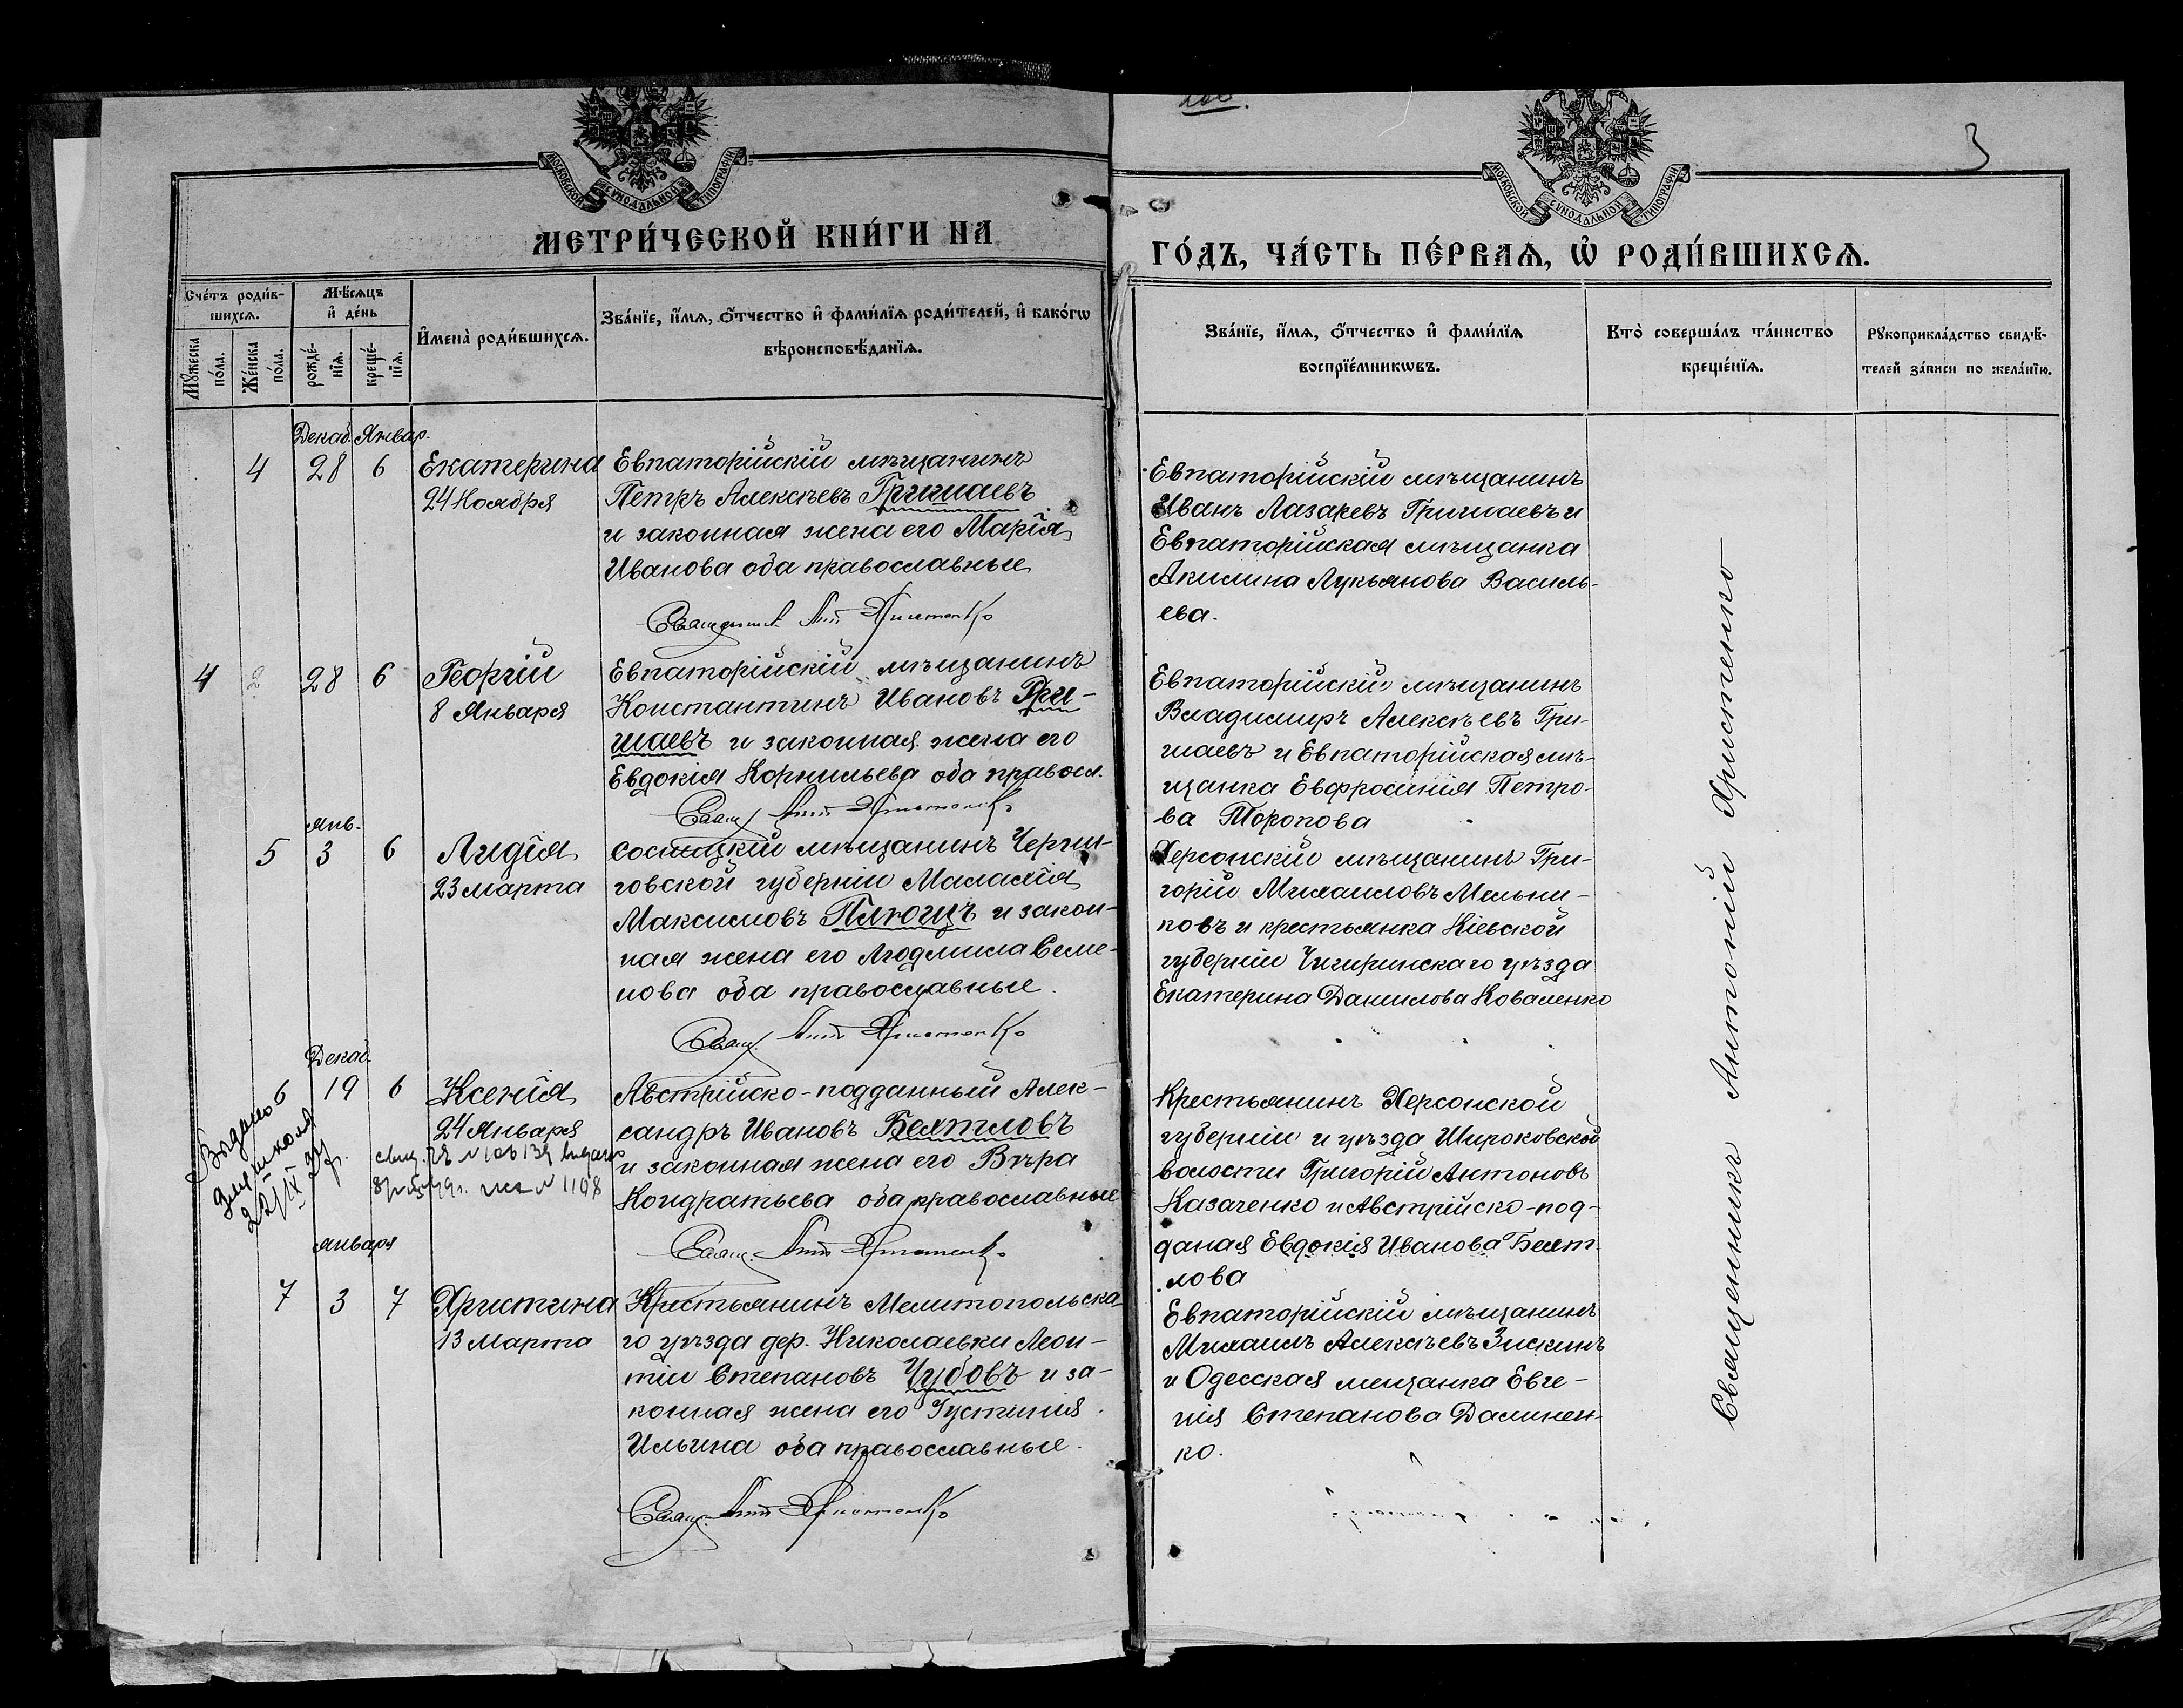 3
МОСКОВСКОЙ СѴНОДАЛЬНОЙ ТИПОГРАФІИ
МОСКОВСКОЙ СѴНОДАЛЬНОЙ ТИПОГРАФІИ
МЕТРИ́ЧЕСКОЙ КНИ́ГИ НА
ГО́ДЪ, ЧА́СТЬ ПЕ́РВАѦ, Ѡ҆ РОДИ́ВШИХСѦ.
Сче́тъ роди́в-
шихсѧ.
Мѣ́сѧцъ
и҆ де́нь
И҆мена̀ роди́вшихсѧ.
Зва́нїе, и҆́мѧ, ѻ҆́тчество и҆ фами́лїѧ роди́телей, и҆ како́гѡ
вѣроисповѣ́данїѧ.
Мꙋ́жеска
по́ла.
Же́нска
по́ла.
рожде́-
нїѧ.
креще́-
нїѧ.
Зва́нїе, и҆́мѧ, ѻ҆́тчество и҆ фами́лїѧ
воспрїе́мникѡвъ.
Кто̀ соверша́лъ та́инство
креще́нїѧ.
Рꙋкоприкла́дство свидѣ́-
телей за́писи по жела́нїю.
Декаб. Январ.
4 28 6 Екатерина
24 Ноября
Евпаторійскій мѣщанинъ
Петръ Алексѣевъ Гришаевъ
и законная жена его Марія
Иванова оба православные
Священник Ант Христенко
Евпаторійскій мѣщанинъ
Иванъ Лазаревъ Гришаевъ и
Евпаторійская мѣщанка
Акилина Лукьянова Василь-
ева.
4 2 28 6 Георгій
8 Января
Евпаторійскій мѣщанинъ
Константинъ Ивановъ Гри-
шаевъ и законная жена его
Евдокія Корнильева оба правосл.
Свящ. Ант Христенко
Евпаторійскій мѣщанинъ
Владимиръ Алексѣевъ Гри-
шаевъ и Евпаторійская мѣ-
щанка Евфросинія Петро-
ва Торопова
янв.
5 3 6 Лидія
23 марта
Сосницкій мѣщанинъ Черни-
говской губерніи Малахія
Максимовъ Плющъ и закон-
ная жена его Людмила Семе-
нова оба православные.
Свящ. Ант Христенко
Херсонскій мѣщанинъ Гри-
горій Михаиловъ Мельни-
ковъ и крестьянка Кіевской
губерніи Чигиринскаго уѣзда
Екатерина Данилова Коваленко
Декаб.
6 19 6 Ксенія
24 Января
Выдано
для школы
22/IX
№ 1198
Австрійско-подданный Алек-
сандръ Ивановъ Беятловъ
и законная жена его Вѣра
Кондратьева оба православные
Свящ. Ант Христенко
Крестьянинъ Херсонской
губерніи и уѣзда Широковской
волости Григорій Антоновъ
Казаченко и Австрійско-под-
даная Евдокія Иванова Беят-
лова
января
7 3 7 Христина
13 марта
Крестьянинъ Мелитопольска-
го уѣзда дер. Николаевки Леон-
тій Степановъ Чубовъ и за-
конная жена его Густинія
Ильина оба православные.
Свящ. Ант Христенко
Евпаторійскій мѣщанинъ
Михаилъ Алексѣевъ Зискинъ
и Одесская мещанка Евге-
нія Степанова Далинен-
ко.
Священникъ Антоній Христенко